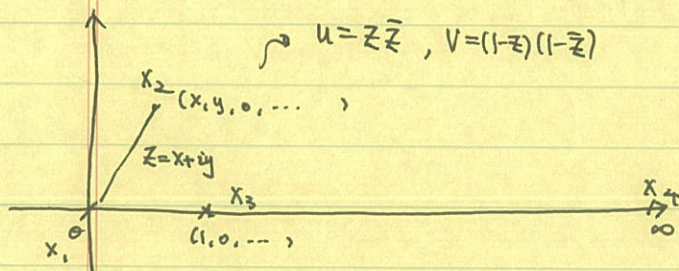 u = z z̄ , v = (1-z)(1-z̄)
x₂ (x, y, 0, ... )
z = x+iy
x₃
x₄
0
∞
x₁
(1, 0, ... )